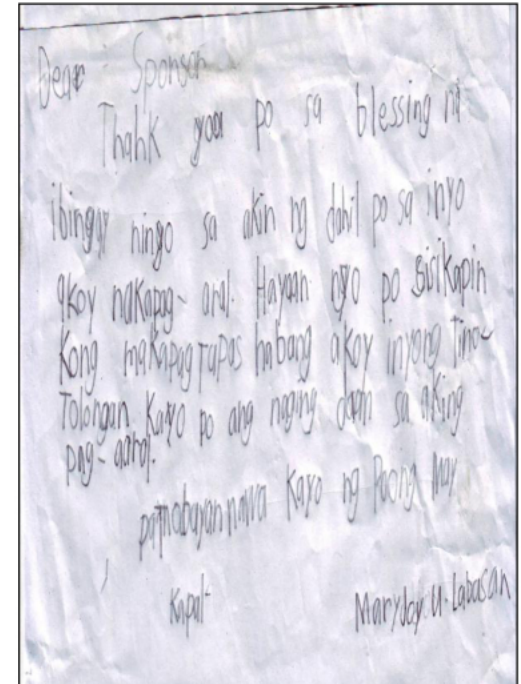 Dear : Sponsor
Thank you po sa blessing na
ibinigay ninyo sa akin ng dahil po sa inyo
akoy nakapag- aral. Hayaan nyo po sisikapin
kong makapag tapos habang akoy inyong Tino-
Tolongan. Kayo po ang naging daan sa aking
pag- aaral.
patnabayan nawa kayo ng Paoing May
kapal
Mary Joy U. Labasan